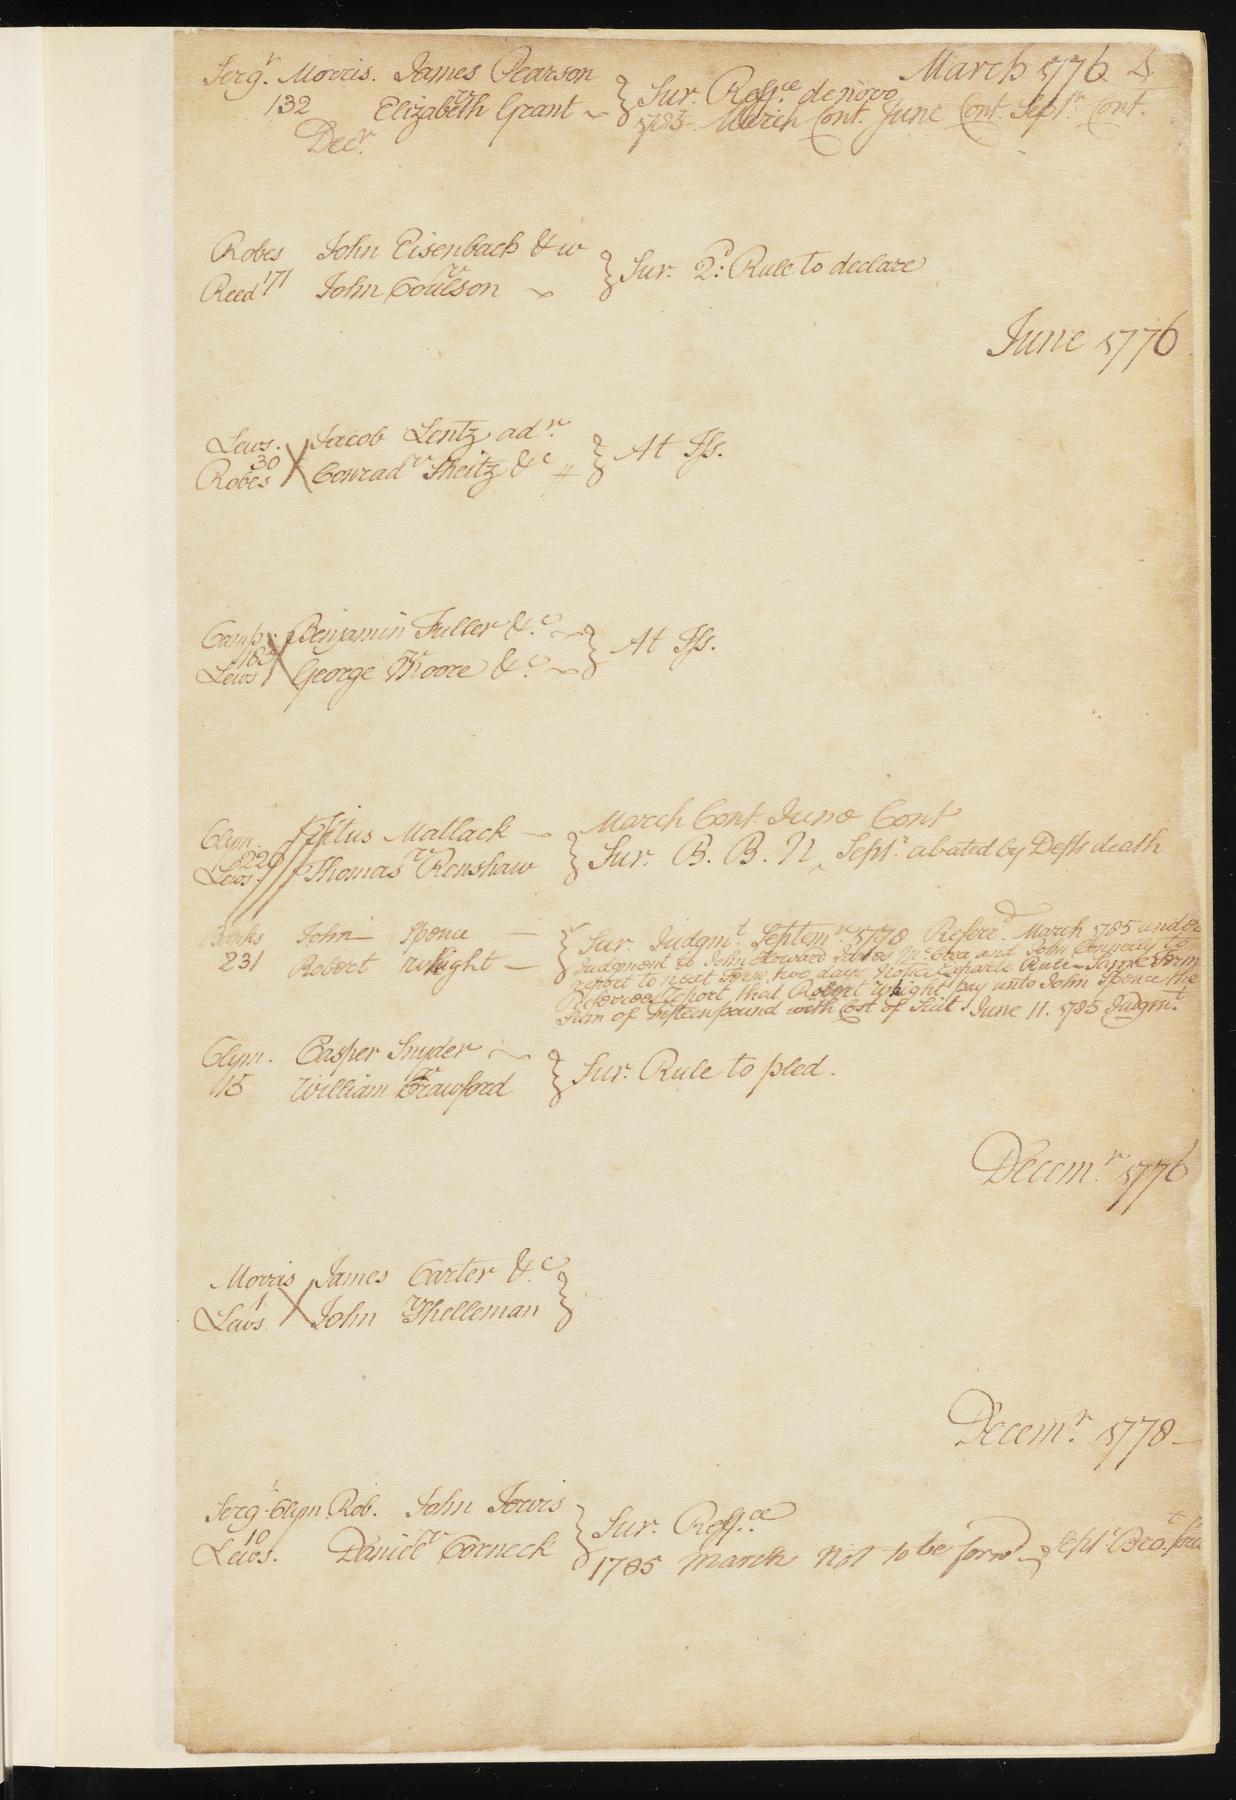 March 1776 4
Serg.t Morris. James Pearson
132 v Elizabeth Grant } Sur. Reff.ce de novo
Dec.r 1785 March Cont. June Cont. Sept.r Cont.
Robes John Eisenbach & w
Reed 171 v John Coulson } Sur. 2.d: Rule to declare
June 1776
Lews. Jacob Lentz ad.r
30
Robes v Conrad Sheitz &c } At Iss.
Camp. Benjamin Fuller &.c
182
Lews v George Moore &.c } At Iss.
March Cont. June Cont
Clym. Titus Matlack
229
Lews. v Thomas Renshaw } Sur. B. B. N ^ Sept.r abated by Defts death
Banks John Spence
231 Robert Wright } Sur. Judgm.t Septem.r 1778 Referr.d March 1785 under
Judgment to John Steward and John
report to next Term, two days Notice Exparte Rule - Same Term
Referrees Report that Robert Wright pay unto John Spence the
Sum of fifteen pound with Cost of Suit. June 11. 1785 Judgm.t
Clym. Casper Snyder
115 v William Crawford } Sur. Rule to pled.
Decem.r 1776
Morris James Carter &c
1
Lews. v John Shelleman }
Decem.r 1778
Serg.t Clym Rob. John Jervis
10
Lews. v Daniel Corneck } Sur. Reff.ce
1785 March Not to be forw.d Sept.r Bro.t